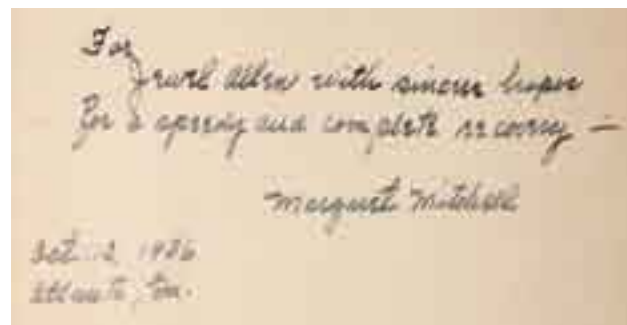 For
Jewel Allen with sincere hopes
for a speedy and complete recovery —
Margaret Mitchell
Oct. 1936
Atlanta, Ga.